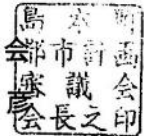 島本町
都市計画
審議会
会長之印
会
彦